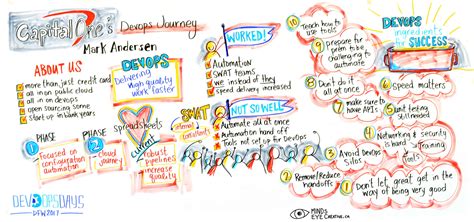 Capital One's
Devops Journey
Mark Andersen
ABOUT US
more than just credit card
all in on public cloud
all in on devops
open sourcing some
start up in blank years
DEVOPS
Delivering
high quality
work faster
WORKED!
Automation
SWAT teams
we instead of they
speed delivery increased
NOT SO WELL
Automate all at once
Automation hand off
Tools not set up for devops
PHASE
1
focused on
configuration
automation
PHASE
2
cloud
journey
spreadsheets
current
robust
pipelines
increase
quality
SWAT
internal
consultants
DEVOPS
ingredients
for
SUCCESS
10
Teach how to
use tools
9
prepare for
prem to be
challenging to
automate
8
Don't do it
all at once
7
make sure to
have APIs
6
speed matters
5
Unit testing
still needed
4
Networking & security
is hard
Training
3
Avoid Devops
silos
2
Remove/Reduce
handoffs
1
Don't let great get in
the way of being very good
DEVOPSDAYS
DFW 2017
MINDS
EYE CREATIVE.CA